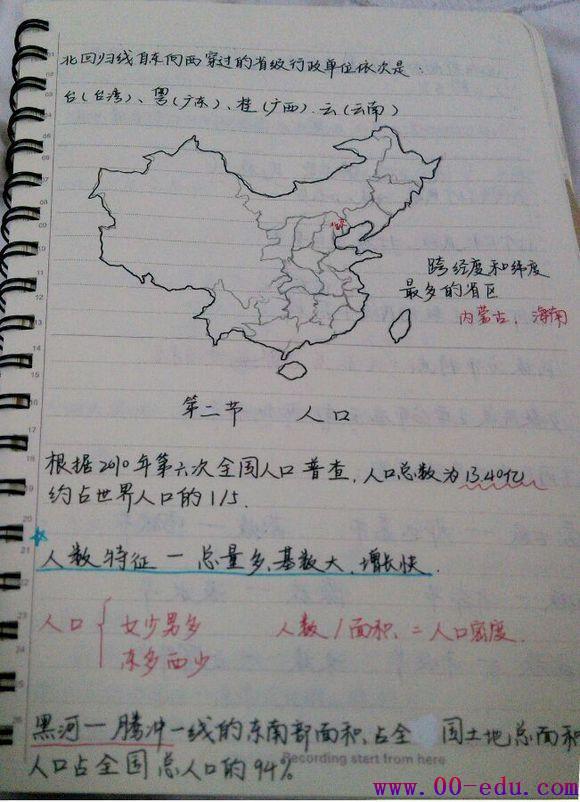 北回归线自东向西穿过的省级行政单位依次是
台(台湾)、粤(广东)、桂(广西).云(云南)
北京
跨经度和纬度
最多的省区
内蒙古、海南
第二节 人口
根据2010年第六次全国人口普查,人口总数为13.40亿
约占世界人口的1/5.
人数特征一总量多、基数大、增长快.
人口{ 女少男多 人数/面积=人口密度.
东多西少
黑河一腾冲一线的东南部面积占全 国土地总面积
人口占全国总人口的94%
Recording start from here
www.00-edu.com